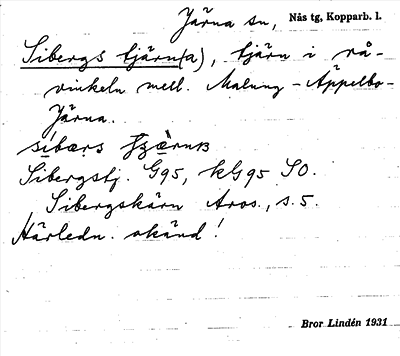 Järna sn, Nås tg, Kopparb. l.
Sibergs tjärn(a), tjärn i rå-
vinkeln mell. Malung – Äppelbo –
Järna.
Sibergstj. G95, kG95 SO.
Sibergskärn Aros., s. 5.
Härledn. okänd!
Bror Lindén 1931